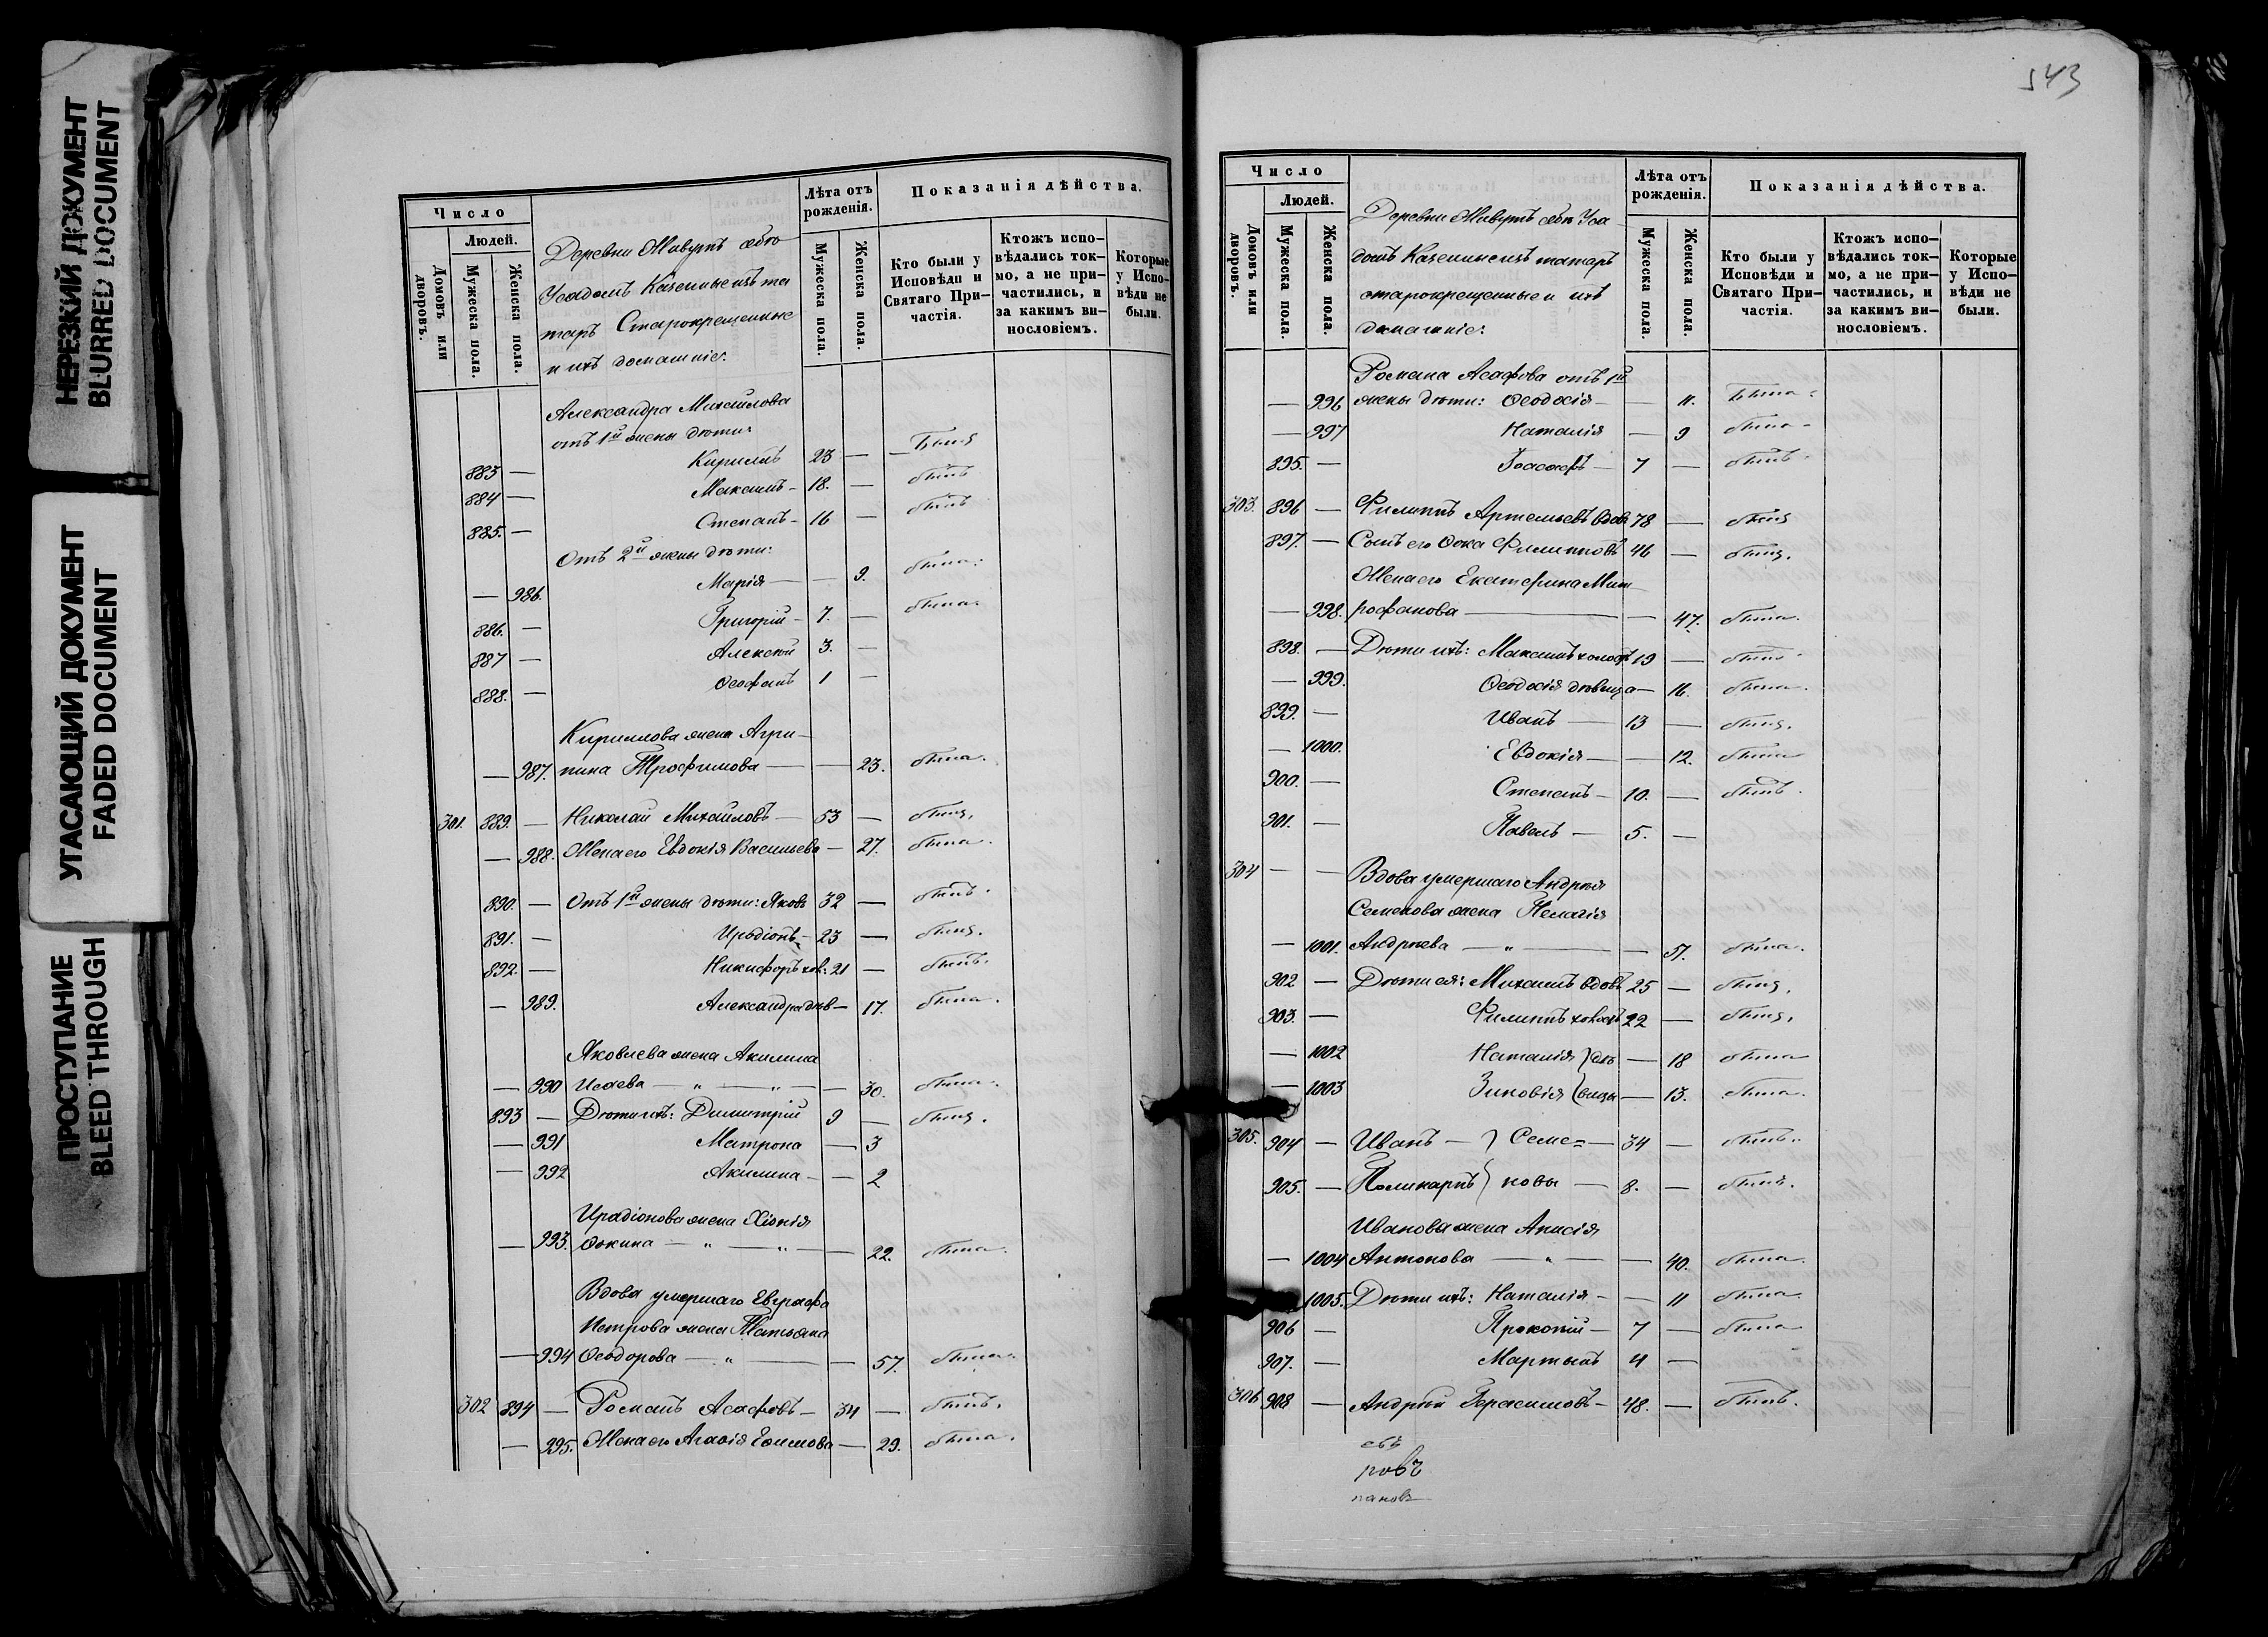 НЕРЕЗКИЙ ДОКУМЕНТ
BLURRED DOCUMENT
УГАСАЮЩИЙ ДОКУМЕНТ
FADED DOCUMENT
ПРОСТУПАНИЕ
BLEED THROUGH
Число
Людей.
Домовъ или дворовъ.
Мужеска пола.
Женска пола.
Деревни
Казенные изъ та
таръ Старокрещенные
и ихъ домашніе:
Лѣта отъ рожденія.
Мужеска пола.
Женска пола.
Показанія дѣйства.
Кто были у Исповѣди и Святаго Причастія.
Ктожъ исповѣдались токмо, а не причастились, и за какимъ винословіемъ.
Которые у Исповѣди не были.
Александра Михайлова
отъ 1й жены дѣти:
883 — Кириллъ 23 — былъ
884 — Максимъ — 18. — былъ
885. — Степанъ — 16 — былъ
Отъ 2й жены дѣти:
— 986. Марія — — 9. была.
886. — Григорій — 7. — была.
887 — Алексѣй 3. —
888. — Ѳеофанъ 1 —
Кириллова жена Агри-
— 987. пина Трофимова — — 23. была.
301. 889. — Николай Михайловъ — 53 — былъ,
— 988. Жена его Евдокія Васильева — 27. была.
890. — Отъ 1й жены дѣти: Яковъ 32 — былъ.
891. — Иродіонъ — 23 — былъ,
892. — Никифоръ хол: 21 — былъ.
— 989. Александра дѣв — 17. была.
Яковлева жена Акилина
— 990 Исаева — „ — „ — — 30. была.
893 — Дѣти ихъ: Димитрій 9 — былъ.
— 991 Матрона — 3
— 992 Акилина — — 2
Ирадіонова жена Хіонія
— 993. Ѳокина — „ — „ — — 22. была.
Вдова умершаго Евграфа
Петрова жена Татьяна
— 994 Ѳеодорова — „ — — 57. была.
302 894 — Романъ Асафовъ — 34 — былъ.
— 995. Жена его Агаѳія Ефимова — 29. была.
543
Число
Людей.
Домовъ или дворовъ.
Мужеска пола.
Женска пола.
Деревни
Казенные изъ татаръ
старокрещенные и ихъ
домашніе:
Лѣта отъ рожденія.
Мужеска пола.
Женска пола.
Показанія дѣйства.
Кто были у Исповѣди и Святаго Причастія.
Ктожъ исповѣдались токмо, а не причастились, и за какимъ винословіемъ.
Которые у Исповѣди не были.
Романа Асафова отъ 1й
— 996 жены дѣти: Ѳеодосія — — 11. Была.
— 997 Наталія — 9 была
895. — Іоасафъ — 7 — былъ.
303. 896 — Филиппъ Артемьевъ вдов 78 — былъ
897. — Сынъ его Ѳока Филипповъ 46 — былъ,
Жена его Екатерина Мит
— 998. рофанова — — 47. была.
898. — Дѣти ихъ: Максимъ холост 19 — былъ.
— 999. Ѳеодосія дѣвица — 16. была.
899. — Иванъ — 13 — былъ,
— 1000. Евдокія — — 12. была
900. — Степанъ — 10. — былъ.
901. — Павелъ — 5. —
304 — — Вдова умершаго Андрея
Семенова жена Пелагія
— 1001. Андреева — „ — — 51. была.
902 — Дѣти ея: Михаилъ вдовъ 25 — былъ,
903. — Филиппъ холостъ 22 — былъ,
— 1002 Наталія } дѣ — 18 была
— 1003 Зиновія } вицы — 13. была.
305. 904 — Иванъ — } Семе= — 34 — былъ.
905. — Поликарпъ } новы — 8. — былъ.
Иванова жена Анисія
— 1004 Антонова — „ — — 40. была.
1005. Дѣти ихъ: Наталія — — 11 была.
906 — Прокопій — 7 — была
907. — Мартынъ 4 —
306 908 — Андрей Герасимовъ — 48. — былъ.
ровъ
пановъ